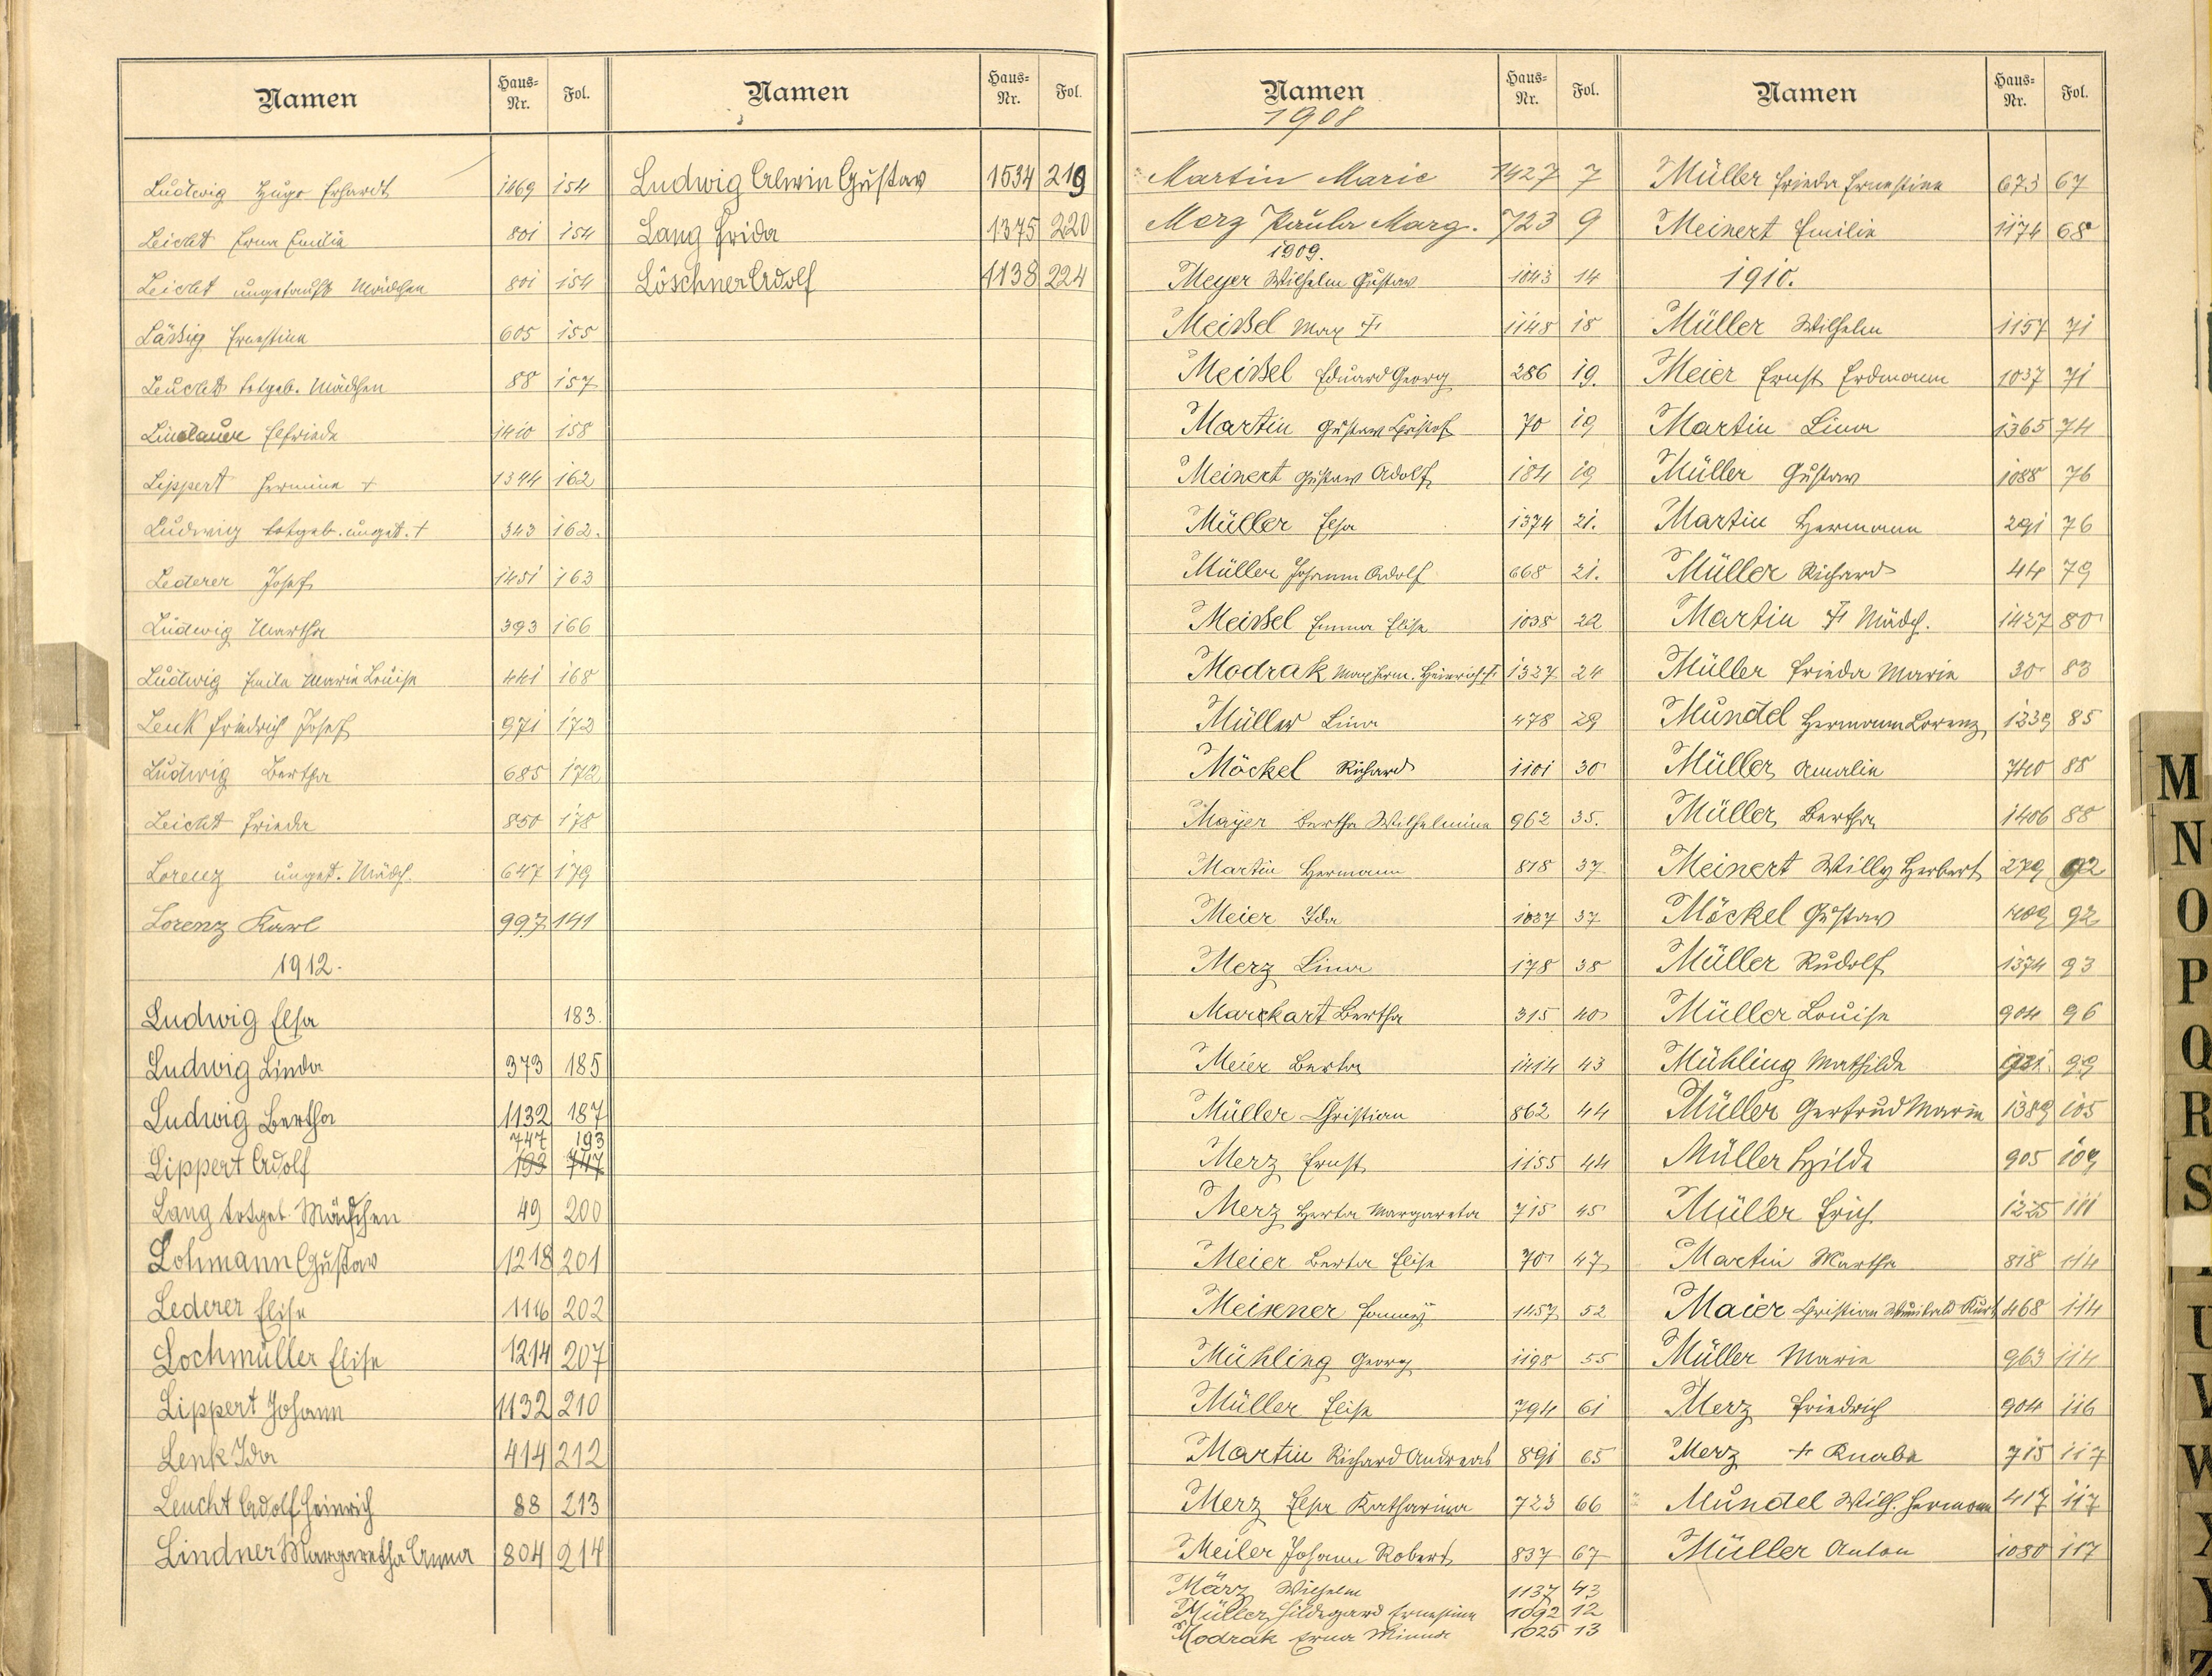 Namen Haus-Nr. Fol.
Ludwig Hugo Erhardt 1469 154
Leicht Erna Emilie 801 154
Leicht ungetauft Mädchen 801 154
Läßig Ernestine 605 155
Leucht totgeb. Mädchen 88 157
Lindauer Elfriede 1410 158
Lippert Hermine + 1344 162
Ludwig totgeb. unget. + 343 162.
Lederer Josef 1451 163
Ludwig Martha 393 166
Ludwig Emila Marie Louise 441 168
Lenk Friedrich Josef 971 172
Ludwig Bertha 685 172
Leicht Frieda 850 178
Lorenz unget. Mädch. 647 179
Lorenz Karl 997 141
1912.
Ludwig Elsa 183.
Ludwig Linda 373 185
Ludwig Bertha 1132 187
747 193
Lippert Adolf 193 747
Lang totgeb. Mädchen 49 200
Lohmann Gustav 1218 201
Lederer Elise 1116 202
Lochmüller Elise 1214 207
Lippert Johann 1132 210
Lenk Ida 414 212
Leucht Adolf Heinrich 88 213
Lindner Margaretha Anna 804 214
Namen Haus-Nr. Fol.
Ludwig Alwin Gustav 1534 219
Lang Frida 1375 220
Löschner Adolf 1138 224
Namen Haus-Nr. Fol.
1908
Martin Marie 1427 7
Merz Paula Marg. 723 9
1909.
Meyer Wilhelm Gustav 1043 14
Meißel Max + 1148 18
Meißel Eduard Georg 286 19.
Martin Gustav Christof 70 19
Meinert Gustav Adolf 184 19
Müller Elsa 1374 21.
Müller Johann Adolf 668 21.
Meißel Emma Elise 1038 22
Modrak Max Herm. Heinrich + 1327 24
Müller Lina 478 29
Möckel Richard 1101 30
Mayer Bertha Wilhelmine 962 35.
Martin Hermann 818 37
Meier Ida 1037 37
Merz Lina 178 38
Marckart Bertha 315 40
Meier Berta 1414 43
Müller Christian 862 44
Merz Ernst 1155 44
Merz Herta Margareta 715 45
Meier Berta Elise 70 47
Meisener Fanny 1457 52
Mühling Georg 1198 55
Müller Elise 794 61
Martin Richard Andreas 891 65
Merz Elsa Katharina 723 66
Meiler Johann Robert 837 67
März Wilhelm 1137 43
Müller Hildegard Ernestine 1092 12
Modrak Erna Minna 1025 13
Namen Haus-Nr. Fol.
Müller Frieda Ernestine 673 67
Meinert Emilie 1174 68
1910.
Müller Wilhelm 1157 71
Meier Ernst Erdmann 1037 71
Martin Lina 1365 74
Müller Gustav 1088 76
Martin Hermann 291 76
Müller Richard 44 79
Martin + Mädch. 1427 80
Müller Frieda Marie 30 83
Mündel Hermann Lorenz 1239 85
Müller Amalie 740 88
Müller Bertha 1406 88
Meinert Willy Herbert 279 92
Möckel Gustav 409 92
Müller Rudolf 1374 93
Müller Louise 904 96
Mühling Mathilde 99
Müller Gertrud Marie 1389 105
Müller Hilda 905 109
Müller Erich 1225 111
Martin Martha 818 114
Maier Christian Kurt 468 114
Müller Marie 963 114
Merz Friedrich 904 116
Merz + Knabe 715 117
Mündel Wilh. Hermann 417 117
Müller Anton 1080 117
M
N
O
P
Q
R
S
U
V
W
X
Y
Z